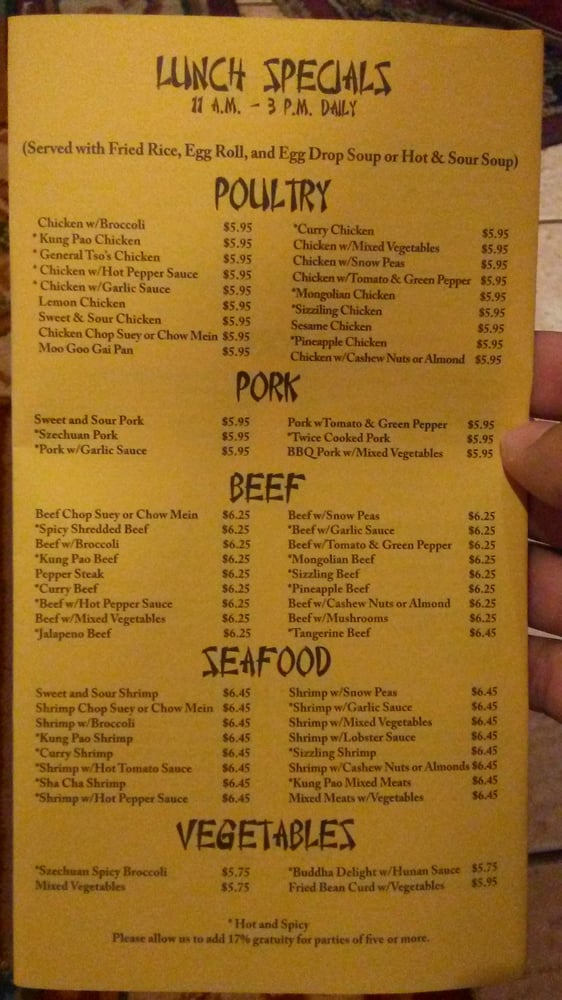 LUNCH SPECIALS
11 A.M. - 3 P.M. DAILY
(Served with Fried Rice, Egg Roll, and Egg Drop Soup or Hot & Sour Soup)
POULTRY
Chicken w/Broccoli $5.95
* Kung Pao Chicken $5.95
* General Tso's Chicken $5.95
* Chicken w/Hot Pepper Sauce $5.95
* Chicken w/Garlic Sauce $5.95
Lemon Chicken $5.95
Sweet & Sour Chicken $5.95
Chicken Chop Suey or Chow Mein $5.95
Moo Goo Gai Pan $5.95
*Curry Chicken $5.95
Chicken w/Mixed Vegetables $5.95
Chicken w/Snow Peas $5.95
Chicken w/Tomato & Green Pepper $5.95
*Mongolian Chicken $5.95
*Sizziling Chicken $5.95
Sesame Chicken $5.95
*Pineapple Chicken $5.95
Chicken w/Cashew Nuts or Almond $5.95
PORK
Sweet and Sour Pork $5.95
*Szechuan Pork $5.95
*Pork w/Garlic Sauce $5.95
Pork wTomato & Green Pepper $5.95
*Twice Cooked Pork $5.95
BBQ Pork w/Mixed Vegetables $5.95
BEEF
Beef Chop Suey or Chow Mein $6.25
*Spicy Shredded Beef $6.25
Beef w/Broccoli $6.25
*Kung Pao Beef $6.25
Pepper Steak $6.25
*Curry Beef $6.25
*Beef w/Hot Pepper Sauce $6.25
Beef w/Mixed Vegetables $6.25
*Jalapeno Beef $6.25
Beef w/Snow Peas $6.25
*Beef w/Garlic Sauce $6.25
Beef w/Tomato & Green Pepper $6.25
*Mongolian Beef $6.25
*Sizzling Beef $6.25
*Pineapple Beef $6.25
Beef w/Cashew Nuts or Almond $6.25
Beef w/Mushrooms $6.25
*Tangerine Beef $6.45
SEAFOOD
Sweet and Sour Shrimp $6.45
Shrimp Chop Suey or Chow Mein $6.45
Shrimp w/Broccoli $6.45
*Kung Pao Shrimp $6.45
*Curry Shrimp $6.45
*Shrimp w/Hot Tomato Sauce $6.45
*Sha Cha Shrimp $6.45
*Shrimp w/Hot Pepper Sauce $6.45
Shrimp w/Snow Peas $6.45
*Shrimp w/Garlic Sauce $6.45
Shrimp w/Mixed Vegetables $6.45
Shrimp w/Lobster Sauce $6.45
*Sizzling Shrimp $6.45
Shrimp w/Cashew Nuts or Almonds $6.45
*Kung Pao Mixed Meats $6.45
Mixed Meats w/Vegetables $6.45
VEGETABLES
*Szechuan Spicy Broccoli $5.75
Mixed Vegetables $5.75
*Buddha Delight w/Hunan Sauce $5.75
Fried Bean Curd w/Vegetables $5.95
* Hot and Spicy
Please allow us to add 17% gratuity for parties of five or more.